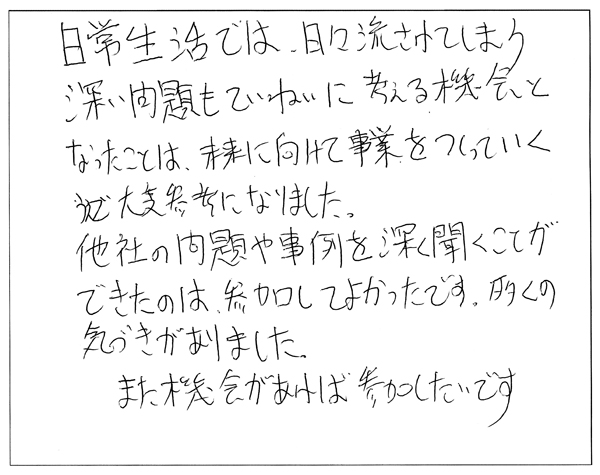 日常生活では、日々流されてしまう
深い問題もていねいに考える機会と
なったことは、未来に向けて事業をつくっていく
うえで大変参考になりました。
他社の問題や事例を深く聞くことが
できたのは、参加してよかったです。多くの
気づきがありました。
また機会があれば参加したいです